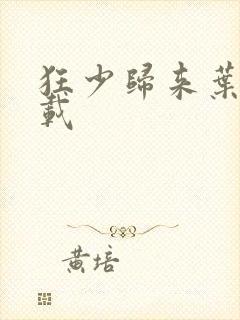 狂少歸來葉
載
黄培